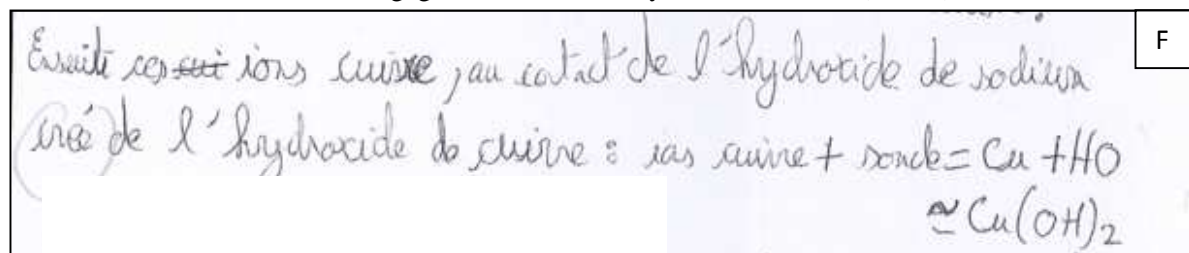 F
Ensuite ces cui ions cuivre, au contact de l'hydroxide de sodium
créé de l'hydroxide de cuivre : ions cuivre + soude = Cu + HO
≃ Cu(OH)2